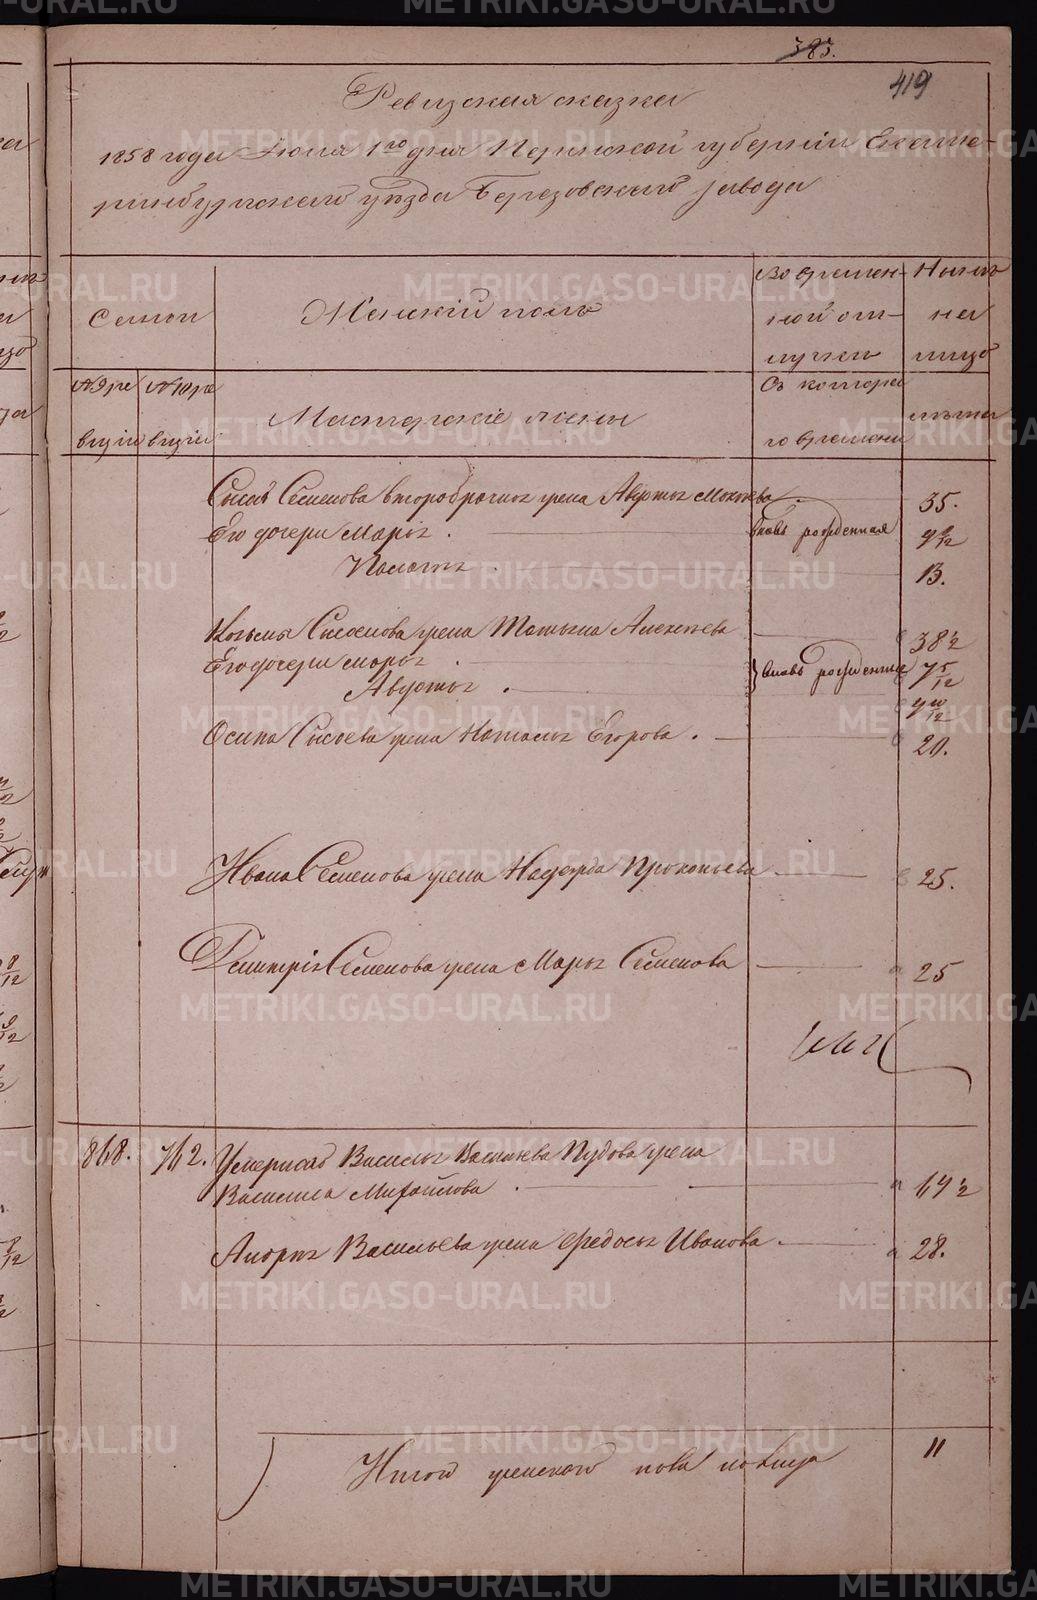 383.
419
Ревизская сказка
1858 года Июня 1го дня Пермской губернии Екате-
ринбургскаго уѣзда Березовскаго завода
Семьи
Женскій полъ
Во времен-
ной от-
лучкѣ
Нынѣ
на
лицо
№ 9 ре
визіи
№ 10 ре
визіи
Мастерскіе жены
Съ котора
го времени
лѣта
Сысоя Семенова второбрачная жена Авдотья 35.
Его дочери Марья . вновь рожденная 9 8/12
Пелагея . 13.
Козьмы Сысоева жена Татьяна Алексѣева 38 1/2
Его дочери Марья . вновь рожденные 7 5/12
Авдотья . 9 10/12
Осипа Сысоева жена Наталья Егорова . 20.
Ивана Семенова жена Надежда Прокопьева 25.
Дмитрія Семенова жена Марья Семенова 25
868. 762. Умершаго Василья Васильева Пудова жена
Василиса Михайлова . 64 1/2
Андрея Васильева жена Федосья Иванова . 28.
Итого женскаго пола на лицо 11
METRIKI.GASO-URAL.RU